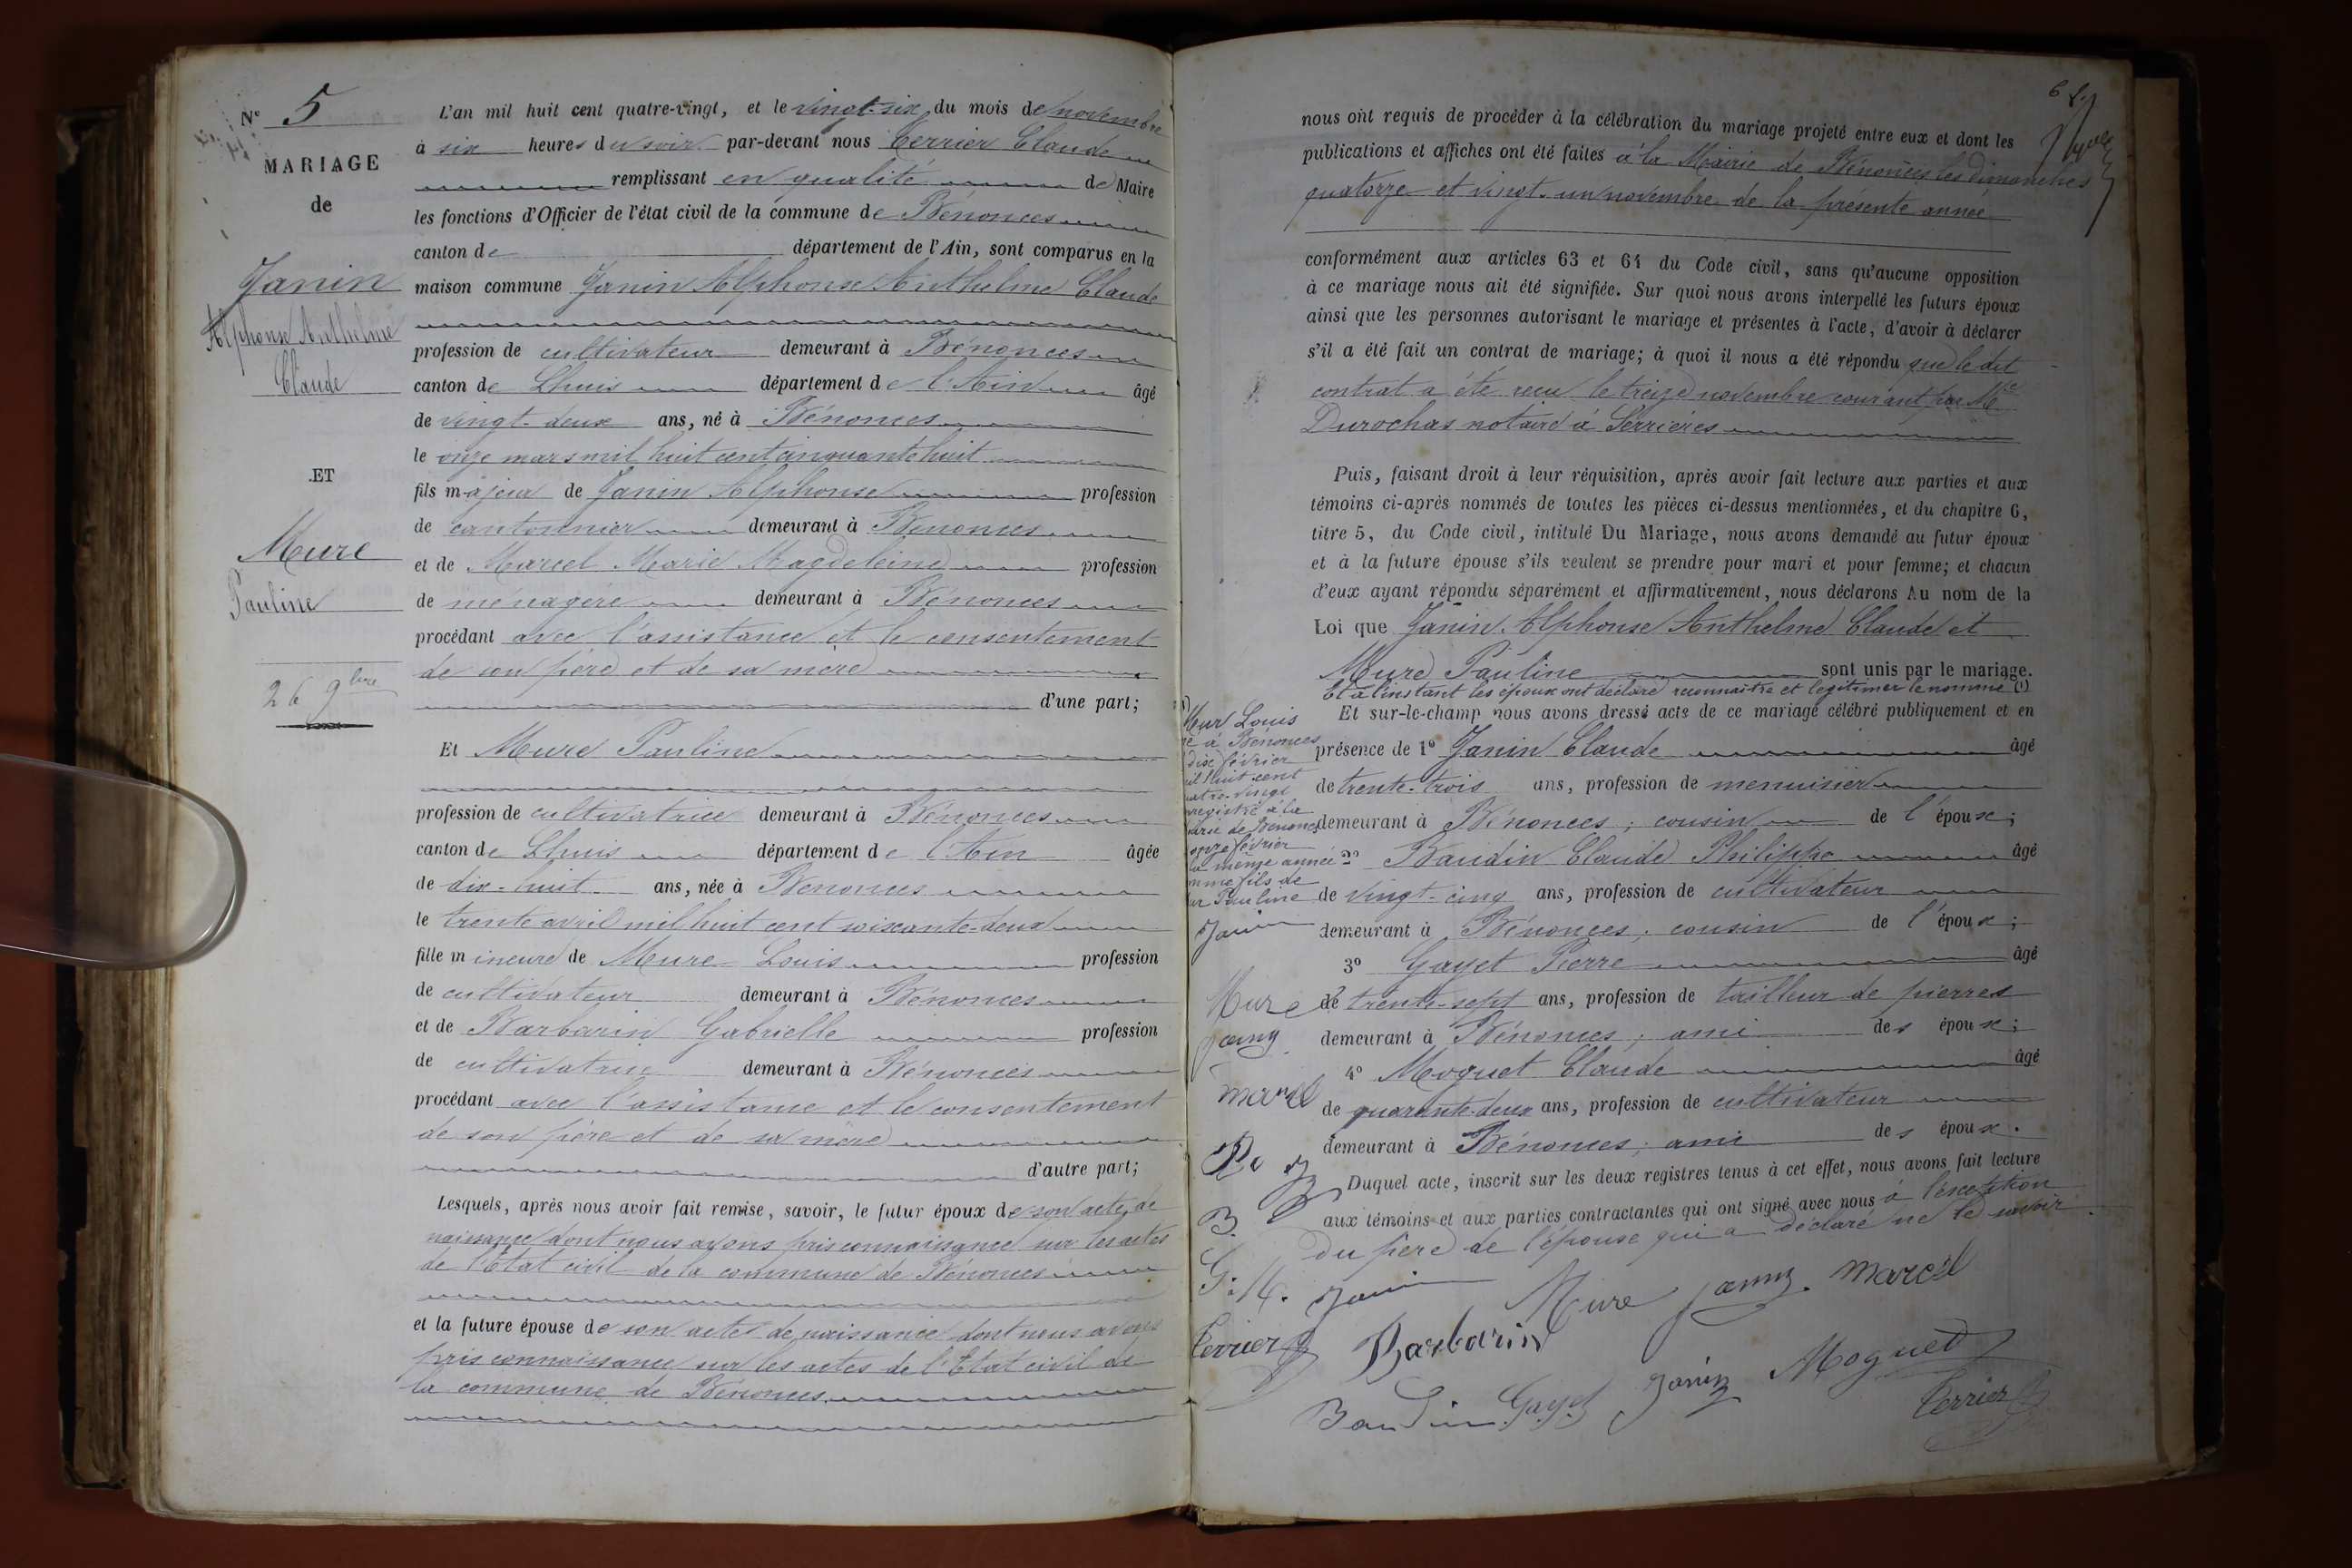 N° 5
MARIAGE
de
Janin
Alphonse Anthelme
Claude
ET
Mure
Pauline
26 9bre
L'an mil huit cent quatre-vingt, et le vingt-six du mois de novembre
à six heures du soir par-devant nous Terrier Claude
remplissant en qualité de Maire
les fonctions d'Officier de l'état civil de la commune de Bénonces
canton de département de l'Ain, sont comparus en la
maison commune Janin Alphonse Anthelme Claude
profession de cultivateur demeurant à Bénonces
canton de Lhuis département de l'Ain âgé
de vingt-deux ans, né à Bénonces
le onze mars mil huit cent cinquante huit
fils majeur de Janin Alphonse profession
de cantonnier demeurant à Bénonces
et de Marcel Marie Magdeleine profession
de ménagère demeurant à Bénonces
procédant avec l'assistance et le consentement
de son père et de sa mère
d'une part;
Et Mure Pauline
profession de cultivatrice demeurant à Bénonces
canton de Lhuis département de l'Ain âgée
de dix-huit ans, née à Bénonces
le trente avril mil huit cent soixante-deux
fille mineure de Mure Louis profession
de cultivateur demeurant à Bénonces
et de Barbarin Gabrielle profession
de cultivatrice demeurant à Bénonces
procédant avec l'assistance et le consentement
de son père et de sa mère
d'autre part;
Lesquels, après nous avoir fait remise, savoir, le futur époux de son acte de
naissance dont nous avons pris connaissance sur les actes
de l'Etat civil de la commune de Bénonces
et la future épouse de son acte de naissance dont nous avons
pris connaissance sur les actes de l'Etat civil de
la commune de Bénonces
nous ont requis de procéder à la célébration du mariage projeté entre eux et dont les
publications et affiches ont été faites à la Mairie de Bénonces les dimanches
quatorze et vingt-un novembre de la présente année
conformément aux articles 63 et 64 du Code civil, sans qu'aucune opposition
à ce mariage nous ait été signifiée. Sur quoi nous avons interpellé les futurs époux
ainsi que les personnes autorisant le mariage et présentes à l'acte, d'avoir à déclarer
s'il a été fait un contrat de mariage; à quoi il nous a été répondu que le dit
contrat a été reçu le treize novembre courant par Me
Durochas notaire à Serrières
Puis, faisant droit à leur réquisition, après avoir fait lecture aux parties et aux
témoins ci-après nommés de toutes les pièces ci-dessus mentionnées, et du chapitre 6,
titre 5, du Code civil, intitulé Du Mariage, nous avons demandé au futur époux
et à la future épouse s'ils veulent se prendre pour mari et pour femme; et chacun
d'eux ayant répondu séparément et affirmativement, nous déclarons Au nom de la
Loi que Janin Alphonse Anthelme Claude et
Mure Pauline sont unis par le mariage.
Et à l'instant les époux ont déclaré reconnaître et légitimer le nommé (1)
Et sur-le-champ nous avons dressé acte de ce mariage célébré publiquement et en
présence de 1° Janin Claude âgé
de trente-trois ans, profession de menuisier
demeurant à Bénonces; cousin de l'époux;
2° Baudin Claude Philippe âgé
de vingt-cinq ans, profession de cultivateur
demeurant à Bénonces; cousin de l'époux;
3° Gayet Pierre âgé
de trente-sept ans, profession de tailleur de pierres
demeurant à Bénonces; ami des époux;
4° Moguet Claude âgé
de quarante-deux ans, profession de cultivateur
demeurant à Bénonces; ami des époux.
Duquel acte, inscrit sur les deux registres tenus à cet effet, nous avons fait lecture
aux témoins et aux parties contractantes qui ont signé avec nous à l'exception
du père de l'épouse qui a déclaré ne le savoir.
Mur Louis
né à Bénonces
dix février
mil huit cent
quatre-vingt
enregistré à la
mairie de Bénonces
onze février
la même année
comme fils de
Mur Pauline
Janin
Mure
janny
marcel
B.
G. M.
Terrier
Janin Mure janny. marcel
Barbarin
Baudin Gayet Janin Moguet
Terrier